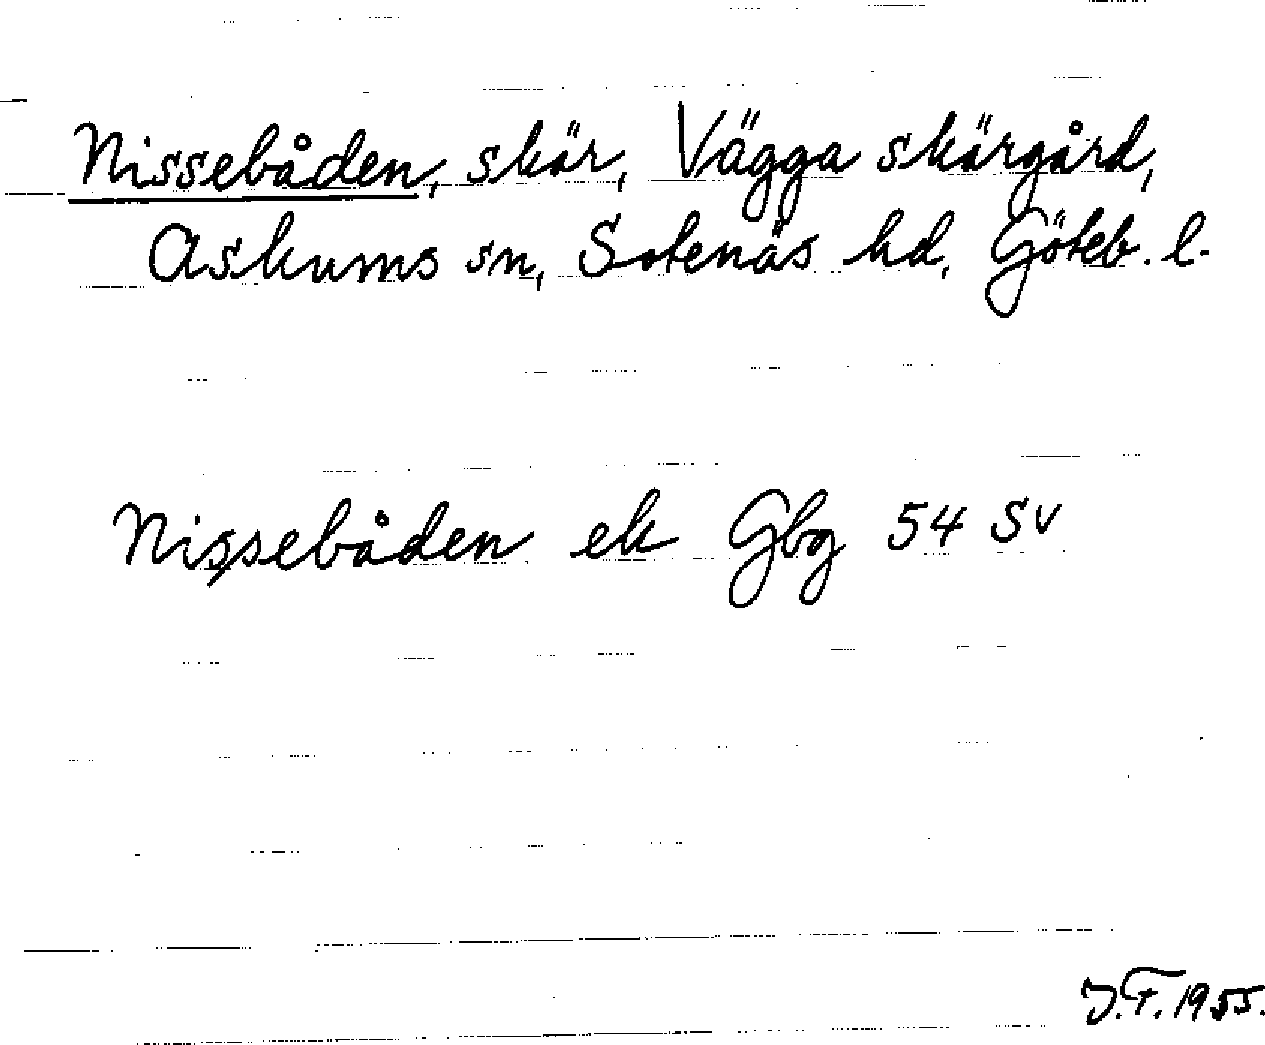 Nissebåden, skär, Vägga skärgård,
Askums sn, Sotenäs hd, Göteb. l.
Nissebåden ek Gbg 54 SV
J.F. 1955.